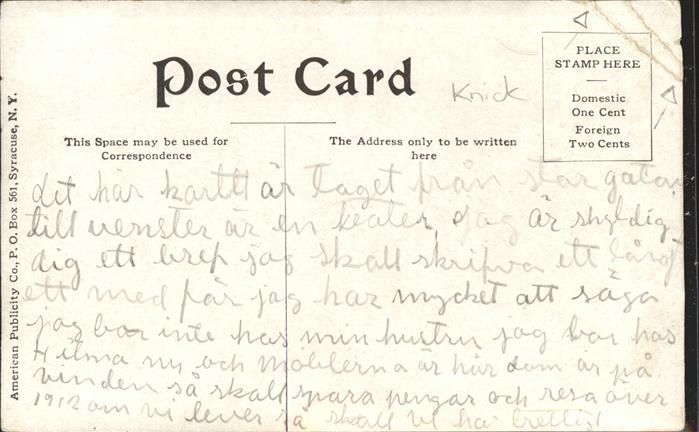 Post Card
Knick
PLACE
STAMP HERE
Domestic
One Cent
Foreign
Two Cents
This Space may be used for
Correspondence
The Address only to be written
here
American Publicity Co., P. O. Box 561, Syracuse, N. Y.
det här kartt är taget från stor gatan
till venster är en teater, jag är skyldig
dig ett bref jag skall skrifva ett långt
ett med för jag har mycket att säga
jag bor inte hos min hustru jag bor hos
Hilma nu och möblerna är här dom är på
vinden så skall spara pengar och resa över
1912 om vi lever så skall vi ha